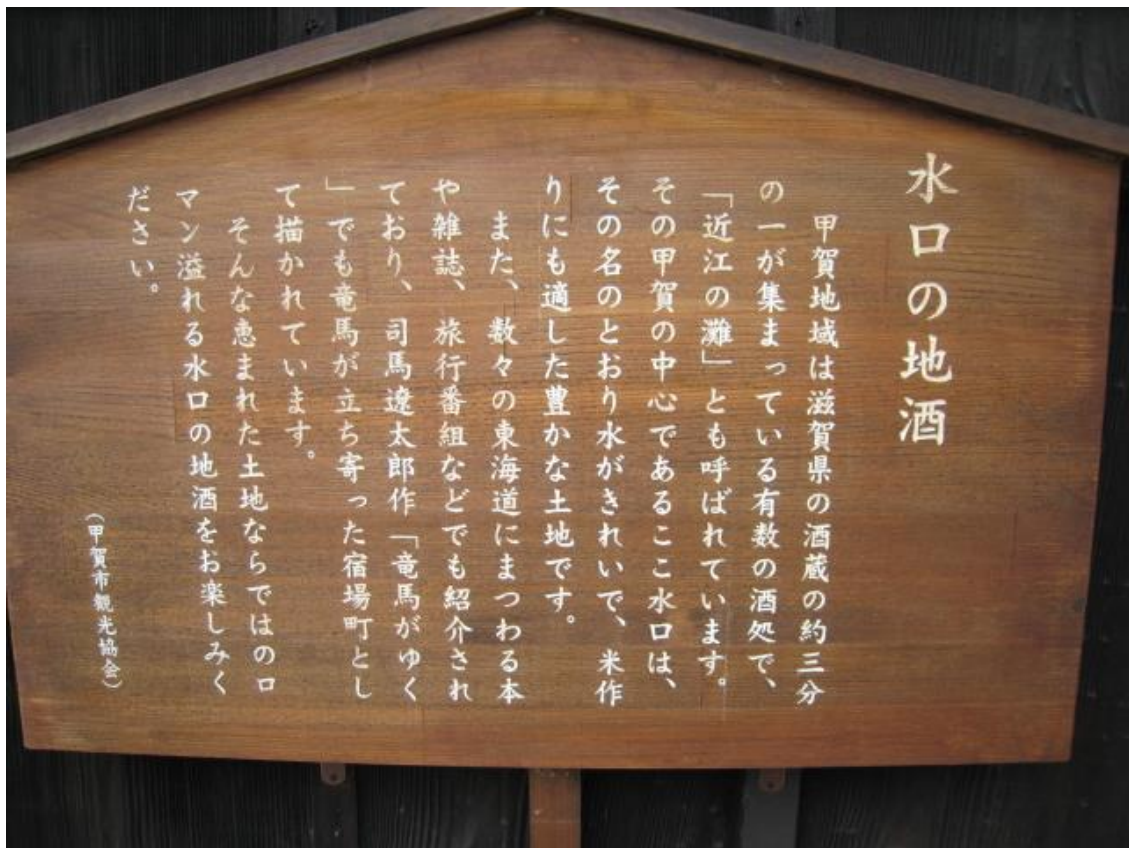 水口の地酒
甲賀地域は滋賀県の酒蔵の約三分
の一が集まっている有数の酒処で、
「近江の灘」とも呼ばれています。
その甲賀の中心であるここ水口は、
その名のとおり水がきれいで、米作
りにも適した豊かな土地です。
また、数々の東海道にまつわる本
や雑誌、旅行番組などでも紹介され
ており、司馬遼太郎作「竜馬がゆく
」でも竜馬が立ち寄った宿場町とし
て描かれています。
そんな恵まれた土地ならではのロ
マン溢れる水口の地酒をお楽しみく
ださい。
（甲賀市観光協会）